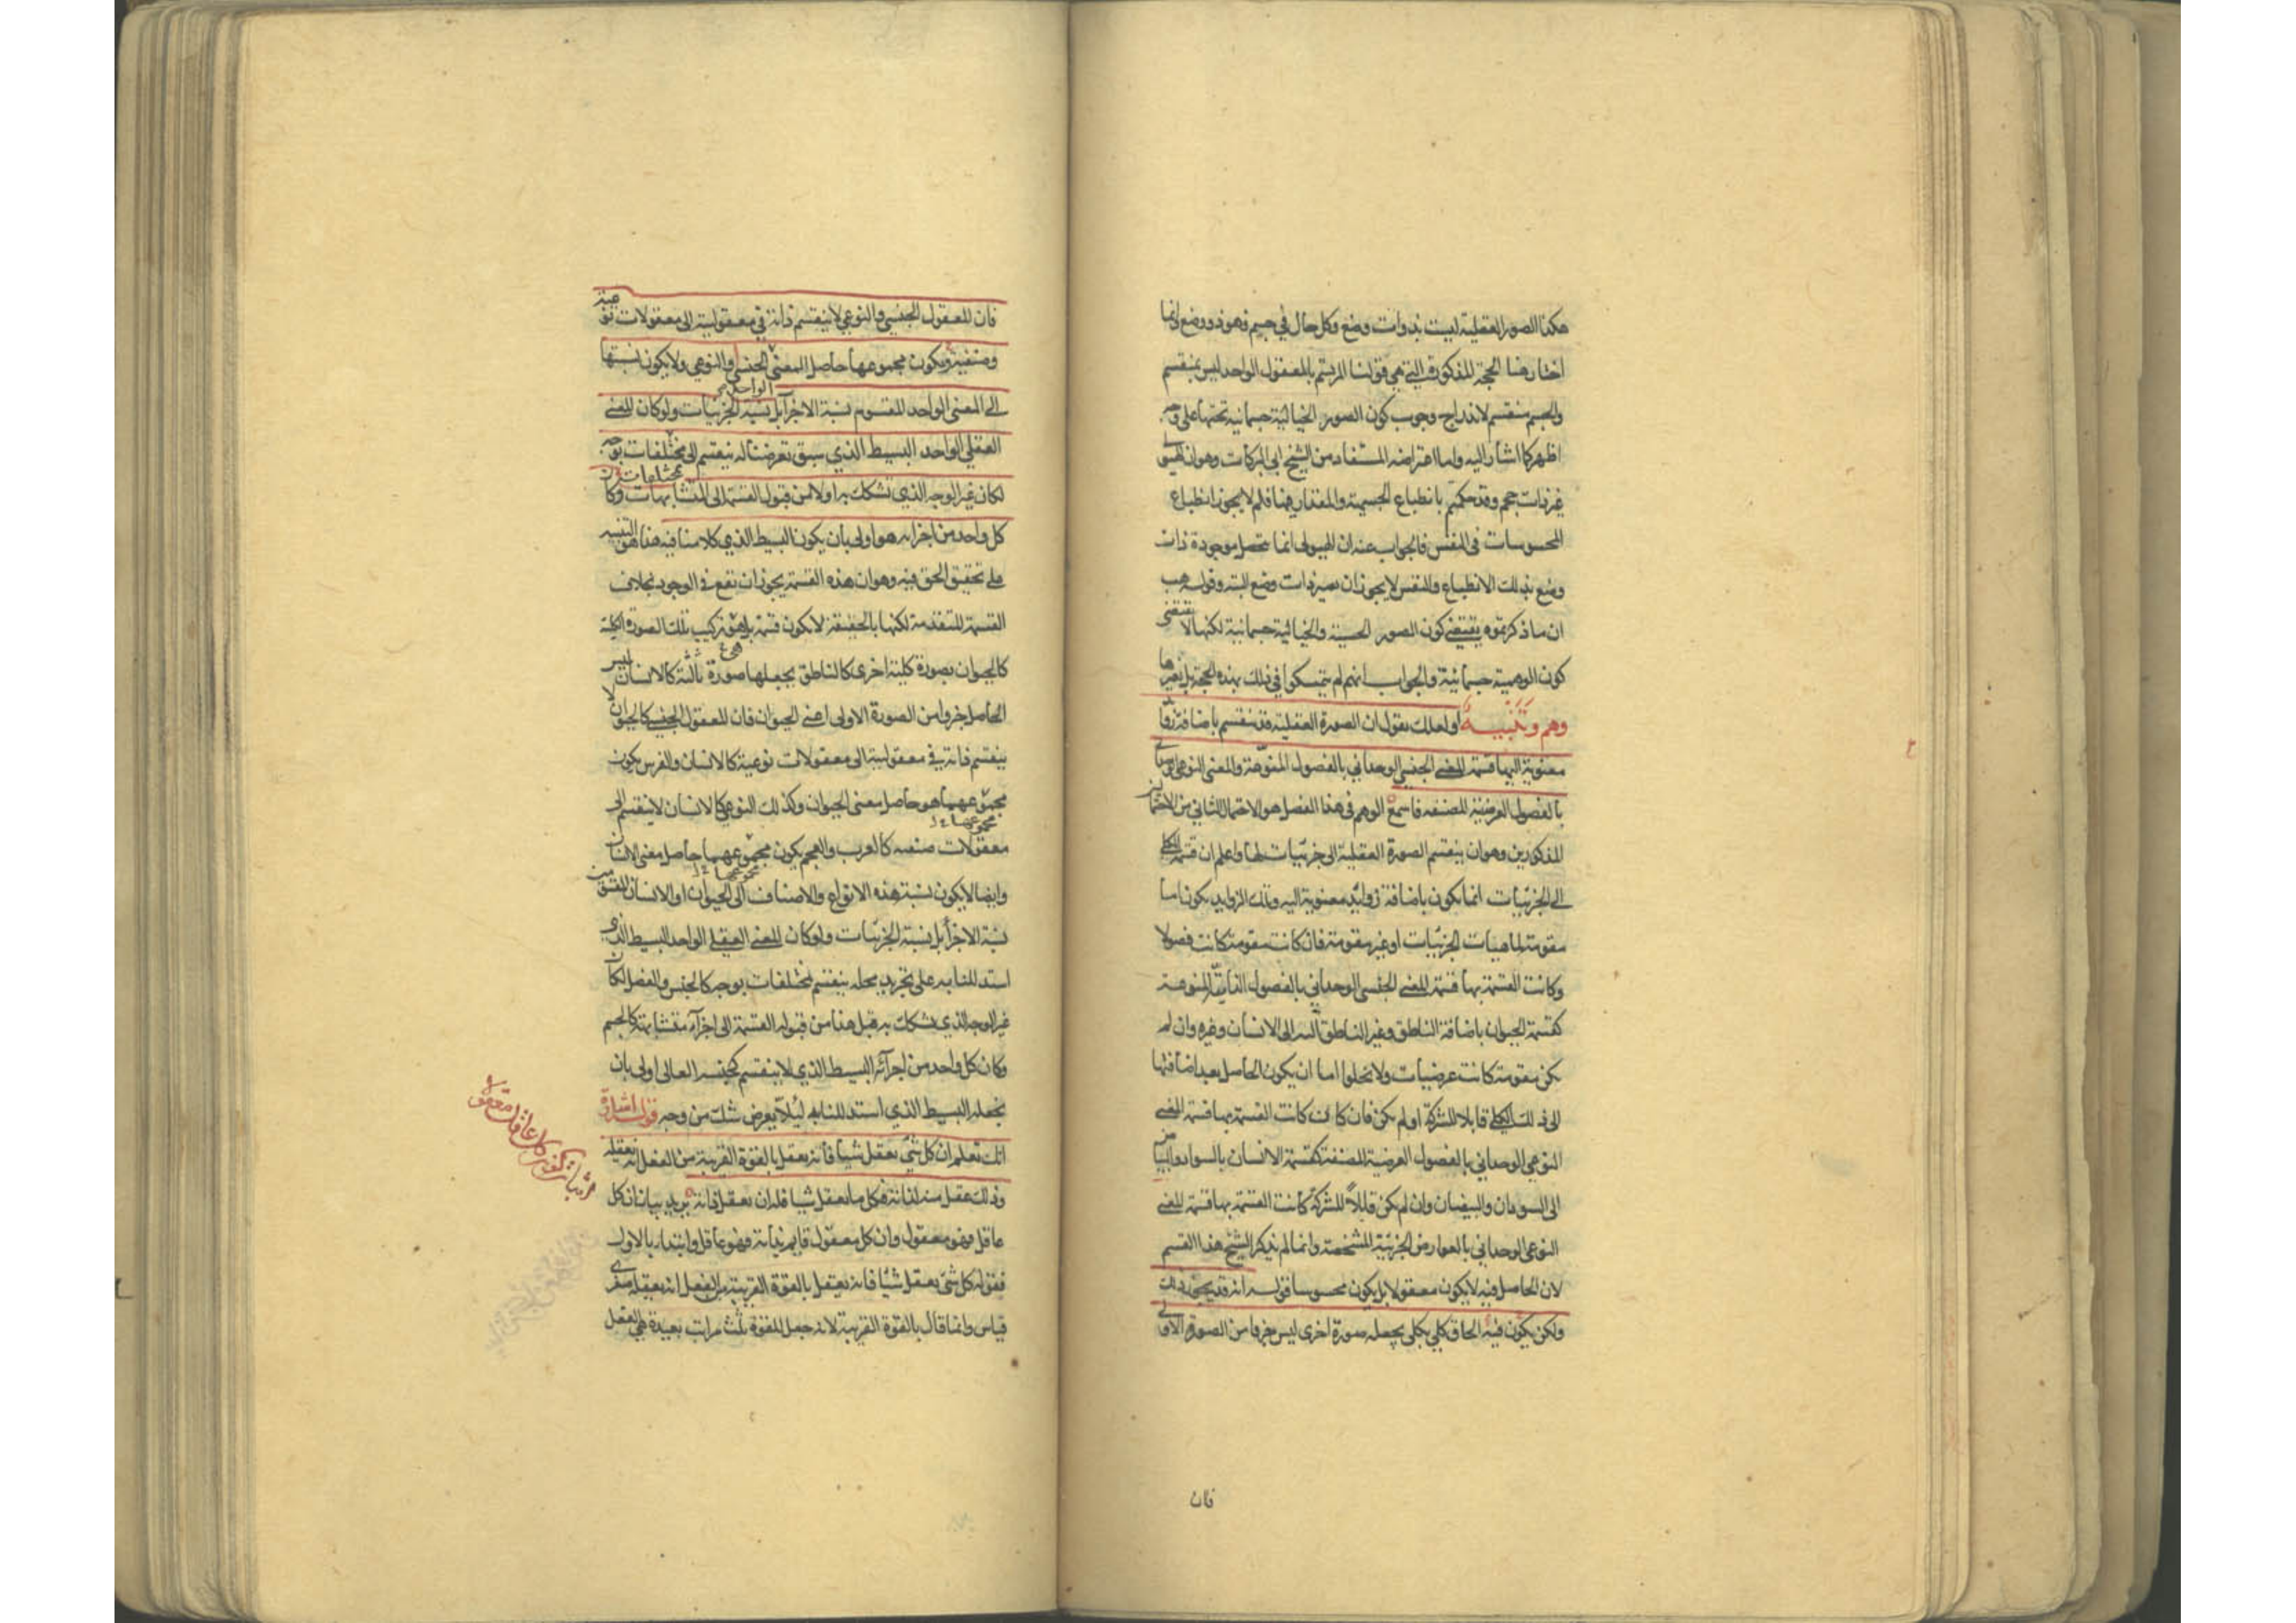 هكذا الصور العقلية ليست بذوات وضع وكل حال في جسم فهو ذو وضع انما
اختار هذا الحجة المذكورة التي هي قولنا المرتسم بالمعقول الواحد ليس بمنقسم
والجسم منقسم لاندراج وجوب كون الصور الخيالية جسمانية تحتها على وجه
اظهر كما اشار اليه واما اعتراضه المستفاد من الشيخ ابي البركات وهو ان الهيولى
غير ذات حجم وقد حكمتم بانطباع الجسمية والمقدار فيها فلم لا يجوز انطباع
المحسوسات في النفس فالجواب عنه ان الهيولى انما تحصل موجودة ذات
وضع بذلك الانطباع والنفس لا يجوز ان تصير ذات وضع البتة وقوله هب
ان ما ذكرتموه يقتضي كون الصور الحسية والخيالية جسمانية لكنها لا تقتضي
كون الوهمية جسمانية والجواب انهم لم يتمسكوا في ذلك بهذه الحجة بل بغيرها
وهم وتنبيه او لعلك تقول ان الصورة العقلية قد تنقسم باضافة زوائد
معنوية اليها قسمة المعنى الجنسي الوحداني بالفصول المنوعة والمعنى النوعي الوحداني
بالفصول العرضية المصنفة فاسمع الوهم في هذا الفصل هو الاحتمال الثاني من الاحتمالين
المذكورين وهو ان ينقسم الصورة العقلية الى جزئيات لها واعلم ان قسمة الكلي
الى الجزئيات انما يكون باضافة زوائد معنوية اليه وتلك الزوايد يكون اما
مقومة لماهيات الجزئيات او غير مقومة فان كانت مقومة كانت فصولا
وكانت القسمة بها قسمة المعنى الجنسي الوحداني بالفصول الذاتية المنوعة
كقسمة الحيوان باضافة الناطق وغير الناطق اليه الى الانسان وغيره وان لم
يكن مقومة كانت عرضيات ولا تخلوا اما ان يكون الحاصل بعد اضافتها
الى ذلك الكلي قابلا للشركة او لم يكن فان كان كانت القسمة بها قسمة المعنى
النوعي الوحداني بالفصول العرضية المصنفة كقسمة الانسان بالسواد والبياض
الى السودان والبيضان وان لم يكن قابلاً للشركة كانت القسمة بها قسمة المعنى
النوعي الوحداني بالعوارض الجزئية المشخصة وانما لم يذكر الشيخ هذا القسم
لان الحاصل فيه لا يكون معقولا بل يكون محسوسا قوله انه قد يجوز ذلك
ولكن يكون فيه الحاق كلي بكلي يجعله صورة اخرى ليس جزءا من الصورة الاولى
فان
فان المعقول الجنسي والنوعي لا ينقسم ذاته في معقوليته الى معقولات نوعية
وصنفية ويكون مجموعها حاصل المعنى الجنسي والنوعي ولا يكون نسبتها
الواحد
الى المعنى الواحد المقسوم نسبة الاجزآء بل نسبة الجزئيات ولو كان المعنى
العقلي الواحد البسيط الذي سبق تعرضنا له ينقسم الى مختلفات بوجه
بمختلفات
لكان غير الوجه الذي تشكك به اولا من قبول القسمة الى المتشابهات وكان
كل واحد من اجزائه هو اولى بان يكون البسيط الذي كلامنا فيه هذا هو التنبيه
على تحقيق الحق فيه وهو ان هذه القسمة يجوز ان تقع في الوجود بخلاف
القسمة المتقدمة لكنها بالحقيقة لا يكون قسمة بل هو تركيب تلك الصورة الكلية
هي
كالحيوان بصورة كلية اخرى كالناطق يجعلها صورة ثالثة كالانسان ليس
الحاصل جزءا من الصورة الاولى اعني الحيوان فان المعقول الجنسي كالحيوان لا
ينقسم ذاته في معقوليته الى معقولات نوعية كالانسان والفرس يكون
مجموعهما هو حاصل معنى الحيوان وكذلك النوعي كالانسان لا ينقسم الى
مجموعها
معقولات صنفية كالعرب والعجم يكون مجموعهما حاصل معنى الانسان
مجموعها
وايضا لا يكون نسبة هذه الانواع والاصناف الى الحيوان او الانسان المقسومين
نسبة الاجزآء بل نسبة الجزئيات ولو كان المعنى العقلي الواحد البسيط الذي
استدللنا به على تجريد محله ينقسم بمختلفات بوجه كالجنس والفصل لكان
غير الوجه الذي تشكك به قبل هذا من قبوله القسمة الى اجزآء متشابهة كالجسم
وكان كل واحد من اجزآئه البسيط الذي لا ينقسم كجنسه العالي اولى بان
نجعله البسيط الذي استدللنا به لئلا يعرض شك من وجه قوله اشارة
انك تعلم ان كل شئ يعقل شيأ فانه يعقل بالقوة القريبة من الفعل انه يعقله
وذلك عقل منه لذاته فكل ما يعقل شيأ فله ان يعقل ذاته يريد بيان ان كل
عاقل فهو معقول وان كل معقول قايم بذاته فهو عاقل وابتداء بالاول
فقوله كل شئ يعقل شيأ فانه يعقل بالقوة القريبة من الفعل انه يعقله صغرى
قياس وانما قال بالقوة القريبة لانه جعل للقوة ثلث مراتب بعيدة هي العقل
اثبات كون كل عاقل معقولا